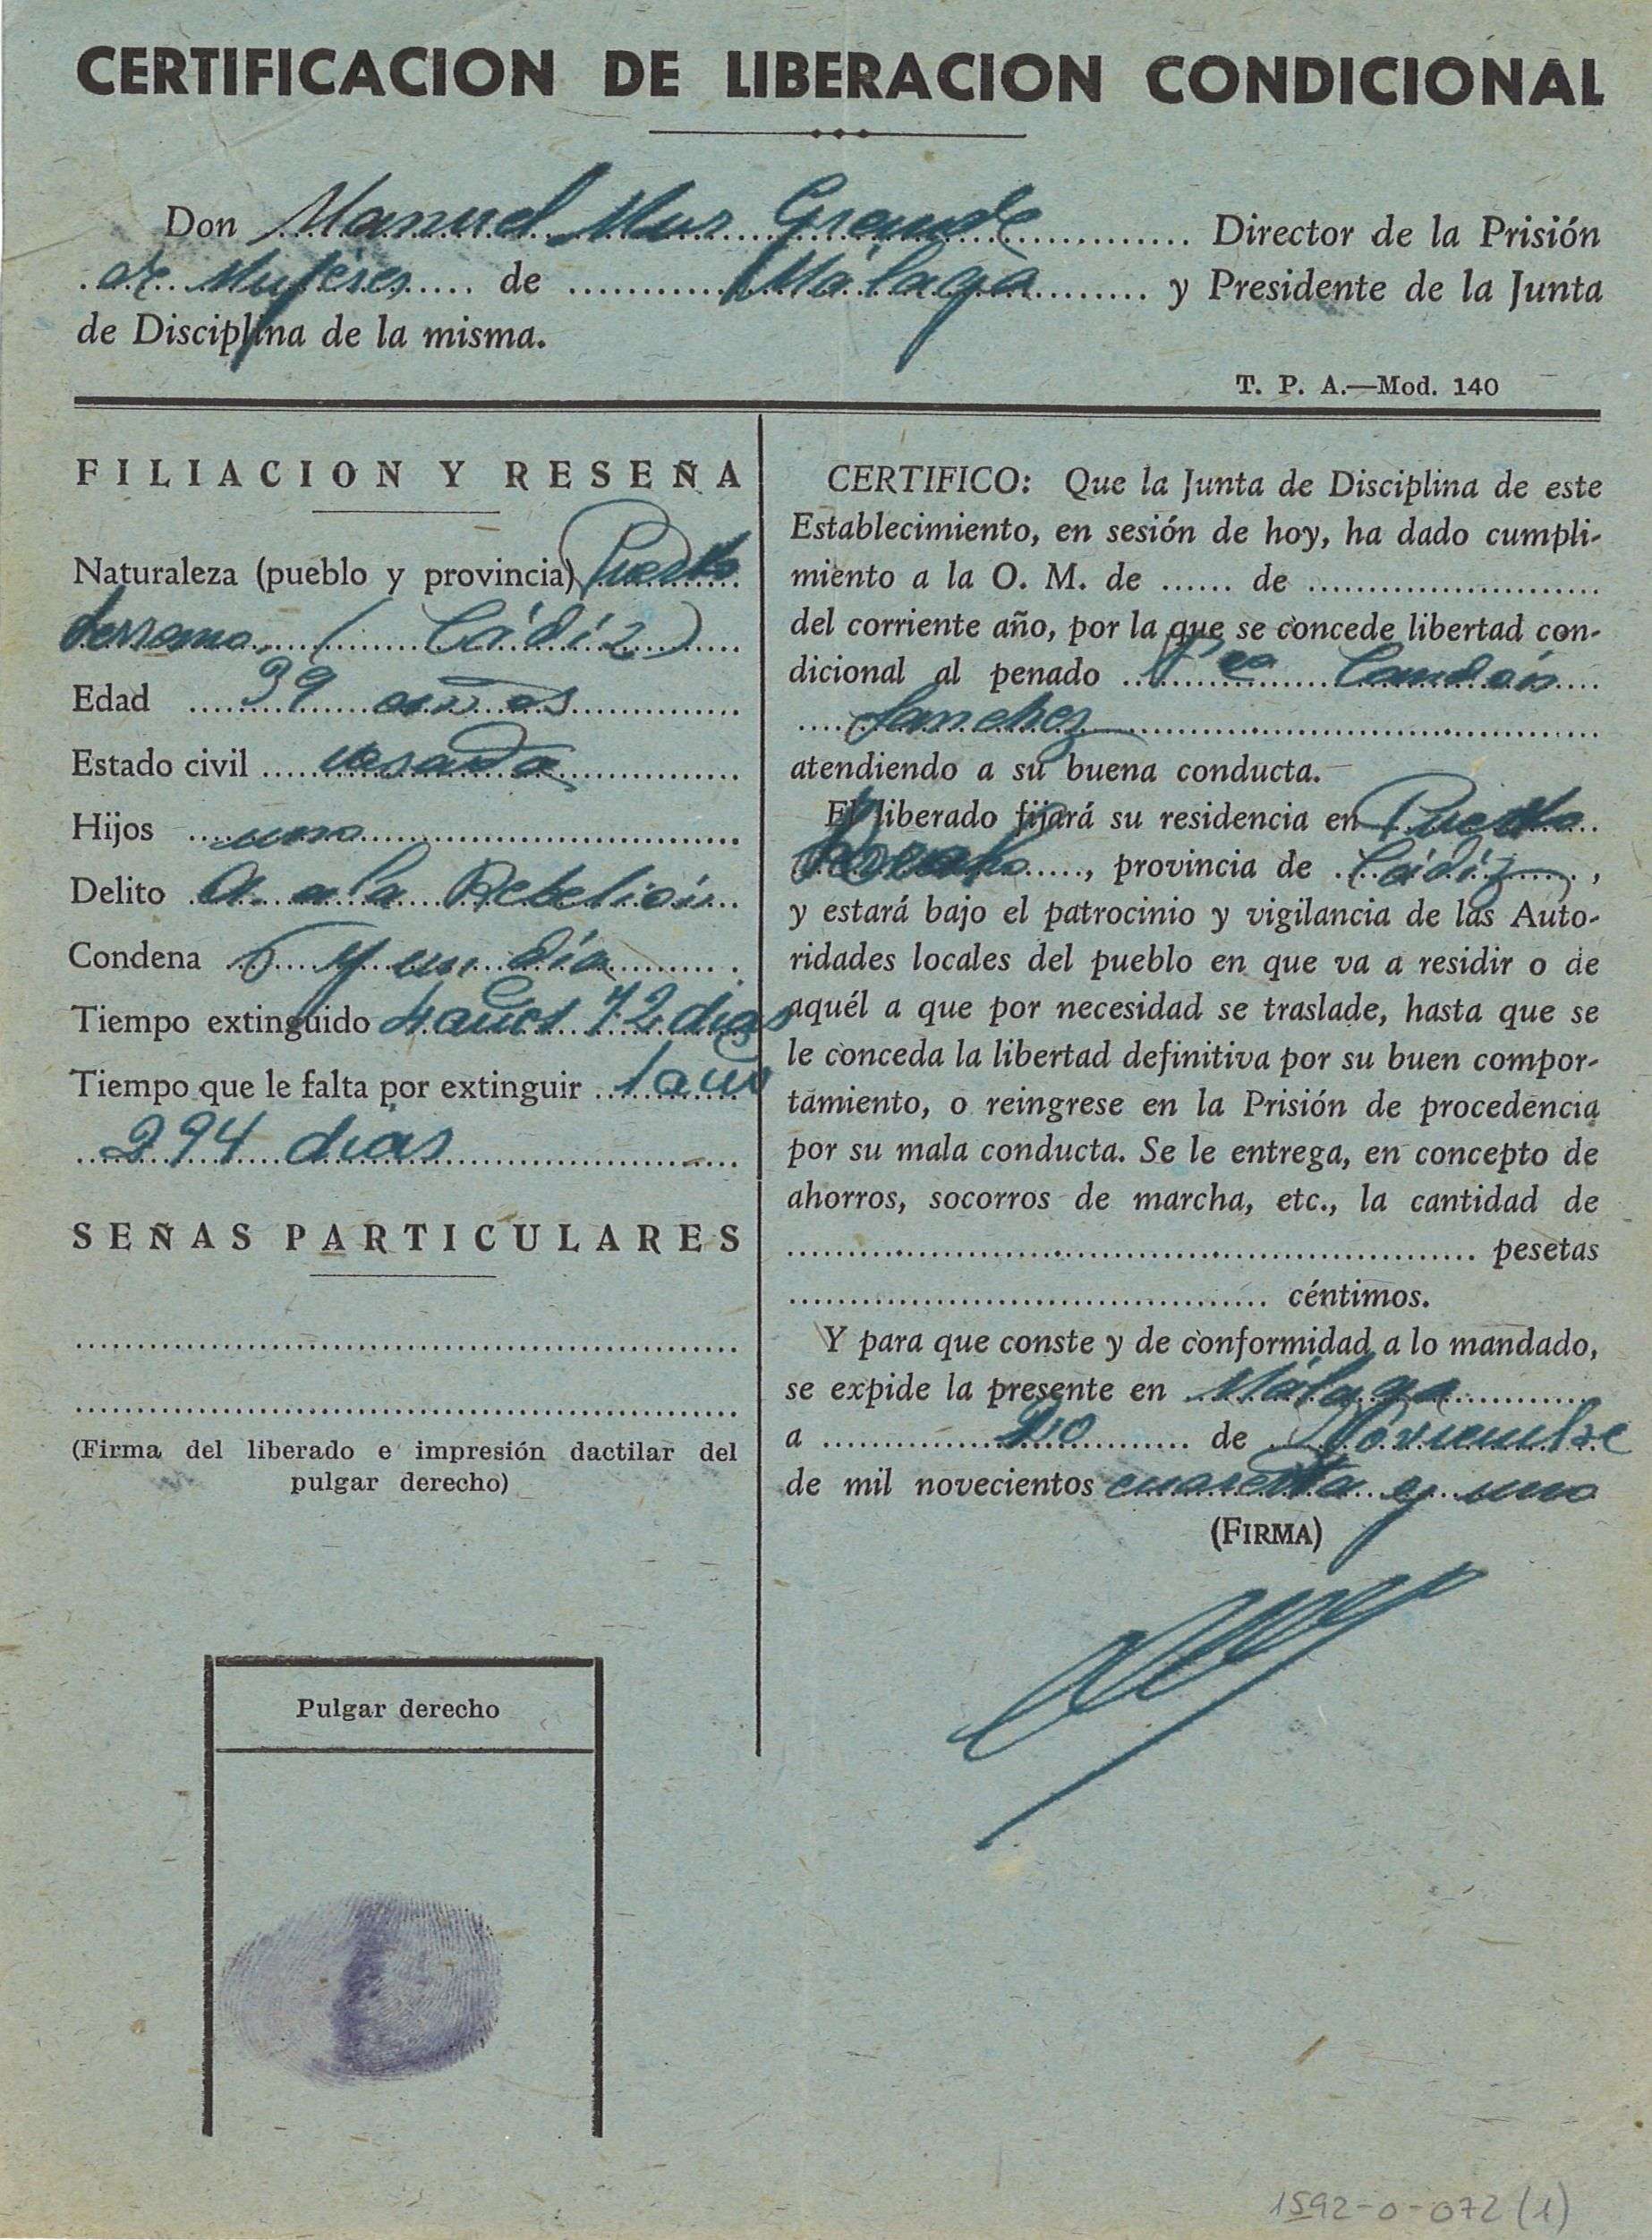 CERTIFICACION DE LIBERACION CONDICIONAL
Don Manuel Mur Grande Director de la Prisión
de Mujeres de Málaga y Presidente de la Junta
de Disciplina de la misma.
T. P. A.—Mod. 140
FILIACION Y RESEÑA
Naturaleza (pueblo y provincia) Puerto
Serrano (Cádiz)
Edad 39 años
Estado civil casada
Hijos uno
Delito A. a la Rebelión
Condena 6 y un día
Tiempo extinguido 4 años 72 dias
Tiempo que le falta por extinguir 1 año
294 dias
SEÑAS PARTICULARES
(Firma del liberado e impresión dactilar del
pulgar derecho)
Pulgar derecho
CERTIFICO: Que la Junta de Disciplina de este
Establecimiento, en sesión de hoy, ha dado cumpli-
miento a la O. M. de ...... de
del corriente año, por la que se concede libertad con-
dicional al penado Fca Candón
Sanchez
atendiendo a su buena conducta.
El liberado fijará su residencia en Puerto
provincia de Cádiz,
y estará bajo el patrocinio y vigilancia de las Auto-
ridades locales del pueblo en que va a residir o de
aquél a que por necesidad se traslade, hasta que se
le conceda la libertad definitiva por su buen compor-
tamiento, o reingrese en la Prisión de procedencia
por su mala conducta. Se le entrega, en concepto de
ahorros, socorros de marcha, etc., la cantidad de
pesetas
céntimos.
Y para que conste y de conformidad a lo mandado,
se expide la presente en Málaga
a de Noviembre
de mil novecientos cuarenta y uno
(FIRMA)
1592-0-072 (1)